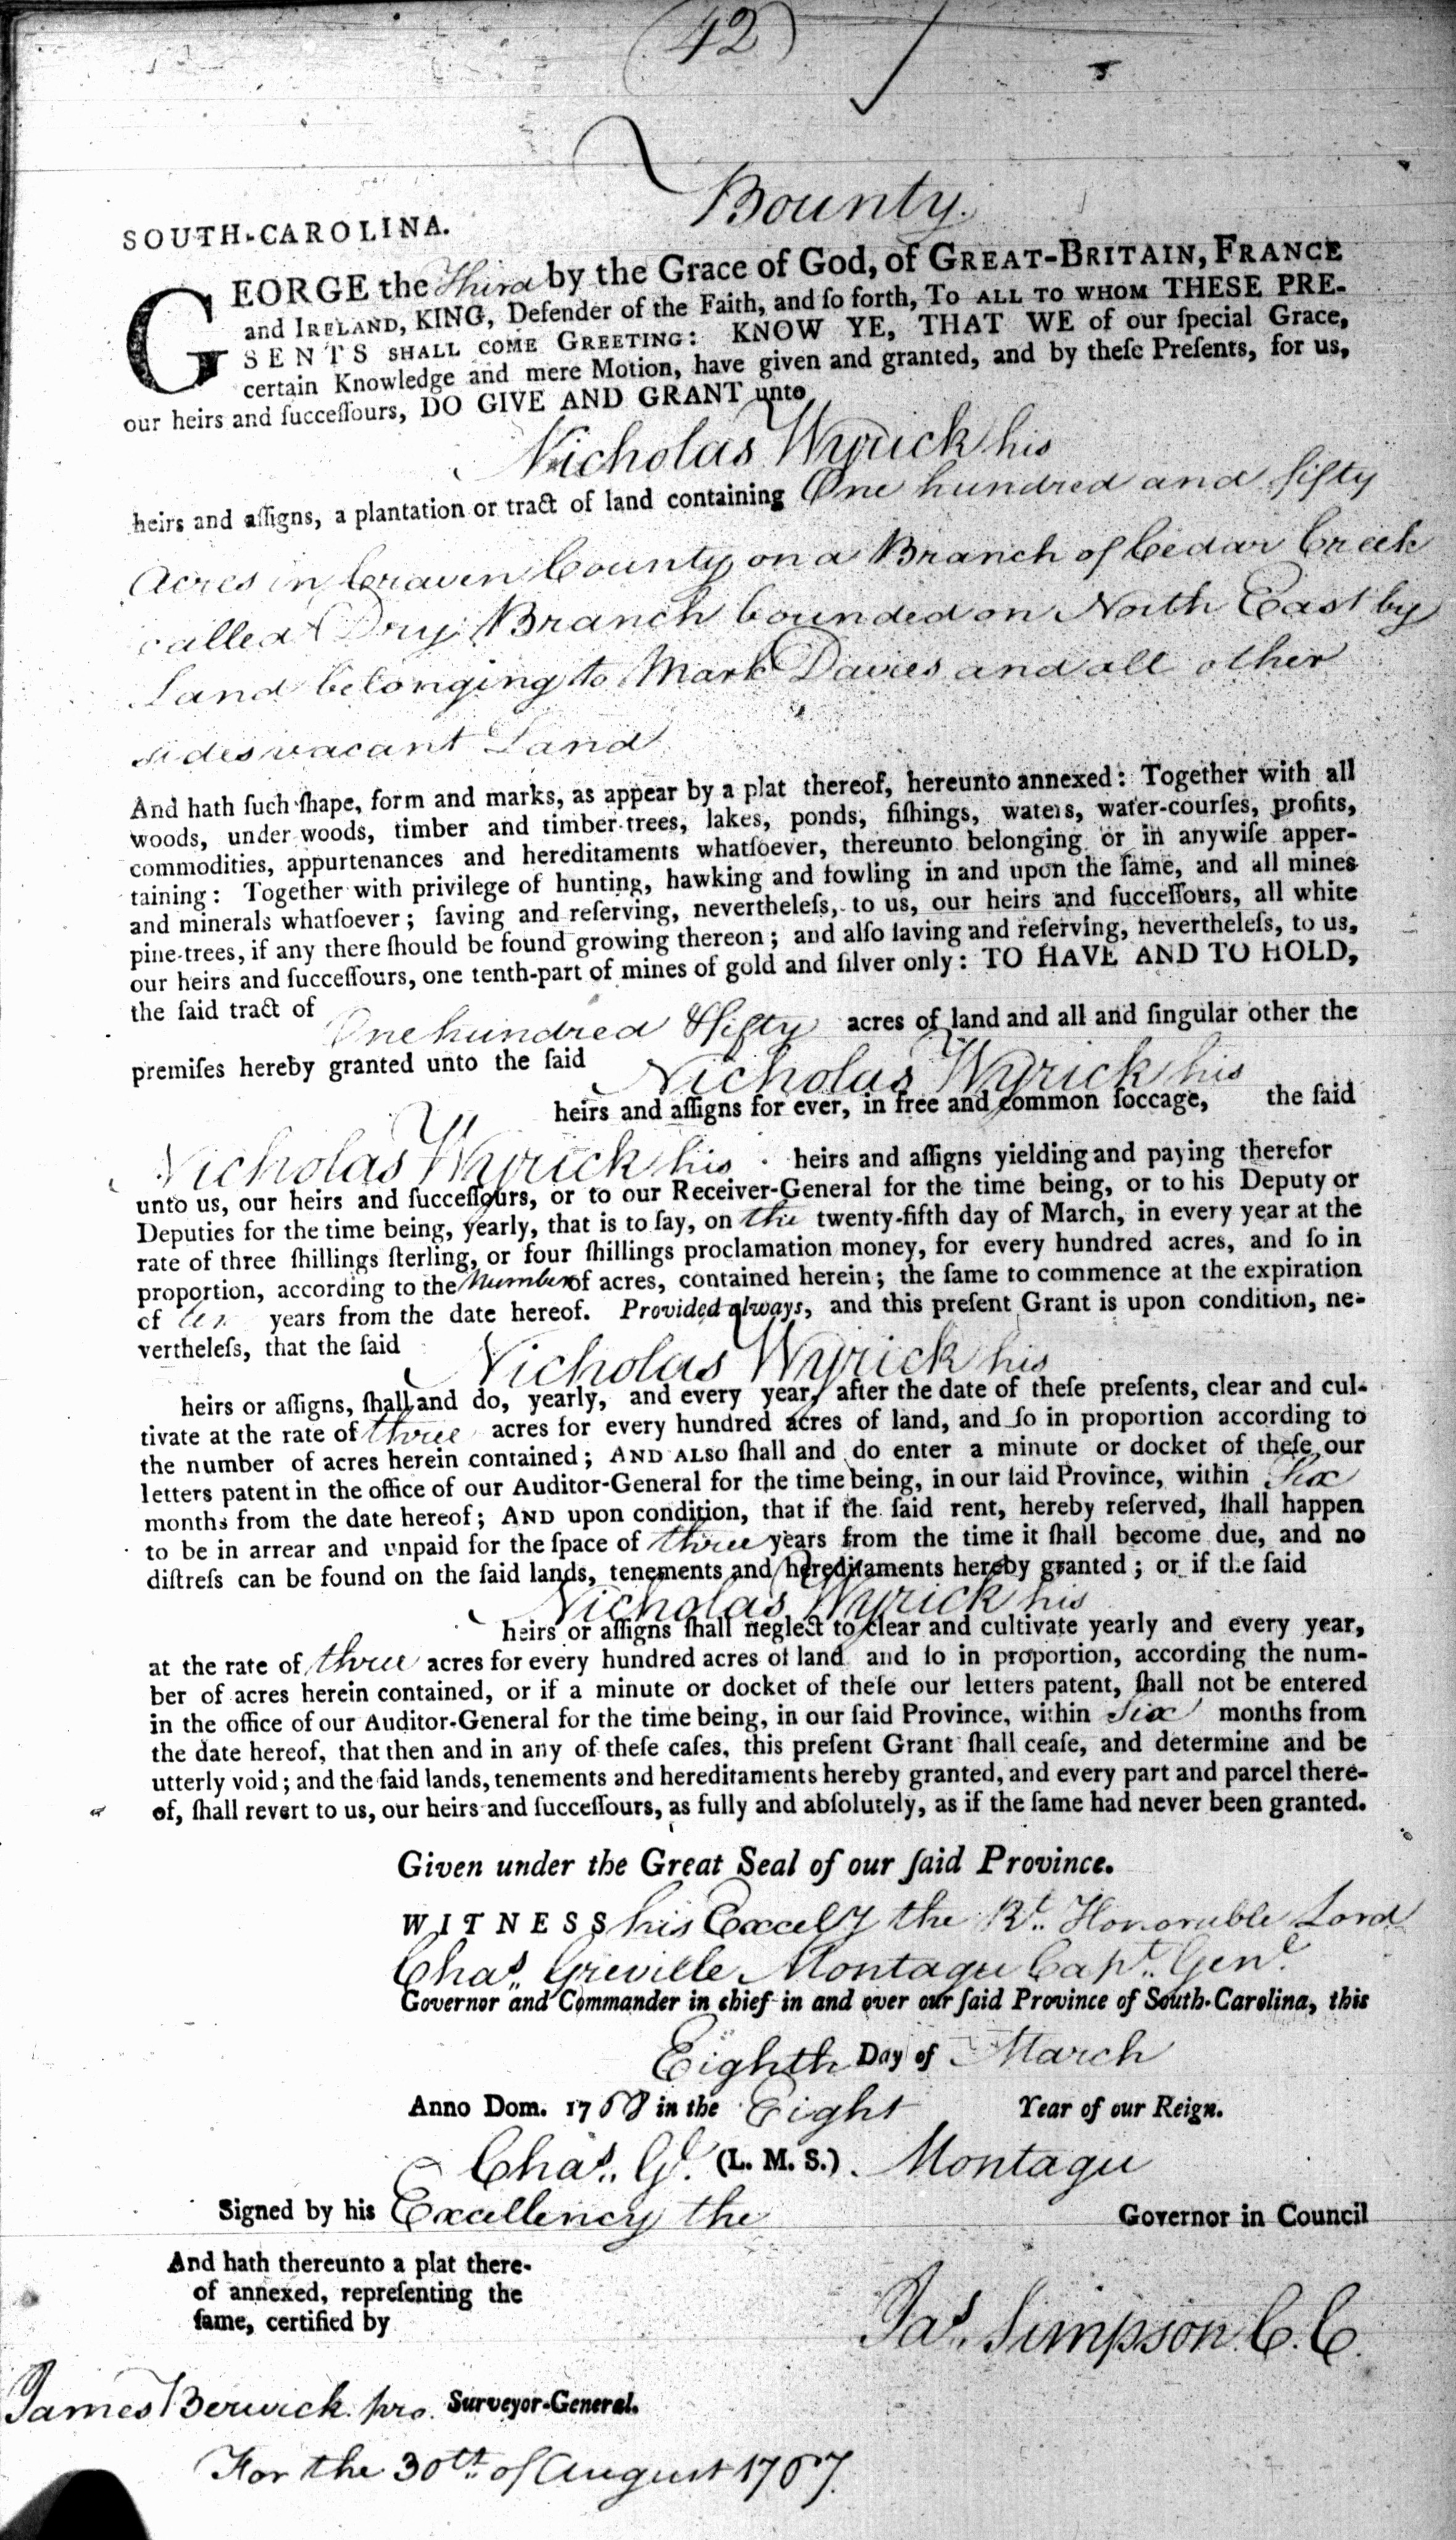 (42)
Bounty.
SOUTH-CAROLINA.
GEORGE the Third by the Grace of God, of GREAT-BRITAIN, FRANCE
and IRELAND, KING, Defender of the Faith, and ſo forth, To ALL TO WHOM THESE PRE-
SENTS SHALL COME GREETING: KNOW YE, THAT WE of our ſpecial Grace,
certain Knowledge and mere Motion, have given and granted, and by theſe Preſents, for us,
our heirs and ſucceſſours, DO GIVE AND GRANT unto
Nicholas Wyrick his
heirs and aſſigns, a plantation or tract of land containing One hundred and fifty
Acres in Craven County on a Branch of Cedar Creek
called Dry Branch bounded on North East by
Land belonging to Mark Davies and all other
sides vacant Land
And hath ſuch ſhape, form and marks, as appear by a plat thereof, hereunto annexed: Together with all
woods, under-woods, timber and timber-trees, lakes, ponds, fiſhings, waters, water-courſes, profits,
commodities, appurtenances and hereditaments whatſoever, thereunto belonging or in anywiſe apper-
taining: Together with privilege of hunting, hawking and fowling in and upon the ſame, and all mines
and minerals whatſoever; ſaving and reſerving, nevertheleſs, to us, our heirs and ſucceſſours, all white
pine-trees, if any there ſhould be found growing thereon; and alſo ſaving and reſerving, nevertheleſs, to us,
our heirs and ſucceſſours, one tenth-part of mines of gold and ſilver only: TO HAVE AND TO HOLD,
the ſaid tract of One hundred & fifty acres of land and all and ſingular other the
premiſes hereby granted unto the ſaid Nicholas Wyrick his
heirs and aſſigns for ever, in free and common ſoccage, the ſaid
Nicholas Wyrick his heirs and aſſigns yielding and paying therefor
unto us, our heirs and ſucceſſours, or to our Receiver-General for the time being, or to his Deputy or
Deputies for the time being, yearly, that is to ſay, on the twenty-fifth day of March, in every year at the
rate of three ſhillings ſterling, or four ſhillings proclamation money, for every hundred acres, and ſo in
proportion, according to the Number of acres, contained herein; the ſame to commence at the expiration
of ten years from the date hereof. Provided always, and this preſent Grant is upon condition, ne-
vertheleſs, that the ſaid Nicholas Wyrick his
heirs or aſſigns, ſhall and do, yearly, and every year, after the date of theſe preſents, clear and cul-
tivate at the rate of three acres for every hundred acres of land, and ſo in proportion according to
the number of acres herein contained; AND ALSO ſhall and do enter a minute or docket of theſe our
letters patent in the office of our Auditor-General for the time being, in our ſaid Province, within Six
months from the date hereof; AND upon condition, that if the ſaid rent, hereby reſerved, ſhall happen
to be in arrear and unpaid for the ſpace of three years from the time it ſhall become due, and no
diſtreſs can be found on the ſaid lands, tenements and hereditaments hereby granted; or if the ſaid
Nicholas Wyrick his
heirs or aſſigns ſhall neglect to clear and cultivate yearly and every year,
at the rate of three acres for every hundred acres of land and ſo in proportion, according the num-
ber of acres herein contained, or if a minute or docket of theſe our letters patent, ſhall not be entered
in the office of our Auditor-General for the time being, in our ſaid Province, within Six months from
the date hereof, that then and in any of theſe caſes, this preſent Grant ſhall ceaſe, and determine and be
utterly void; and the ſaid lands, tenements and hereditaments hereby granted, and every part and parcel there-
of, ſhall revert to us, our heirs and ſucceſſours, as fully and abſolutely, as if the ſame had never been granted.
Given under the Great Seal of our ſaid Province.
WITNESS his Excelly the Rt. Honorable Lord
Chas. Greville Montagu Capt. Genl.
Governor and Commander in chief in and over our ſaid Province of South-Carolina, this
Eighth Day of March
Anno Dom. 1768 in the Eight Year of our Reign.
Chas. Gl. (L. M. S.) Montagu
Signed by his Excellency the Governor in Council
And hath thereunto a plat there-
of annexed, repreſenting the
ſame, certified by
Jas. Simpson C.C.
James Berwick pro. Surveyor-General.
For the 30th of August 1767